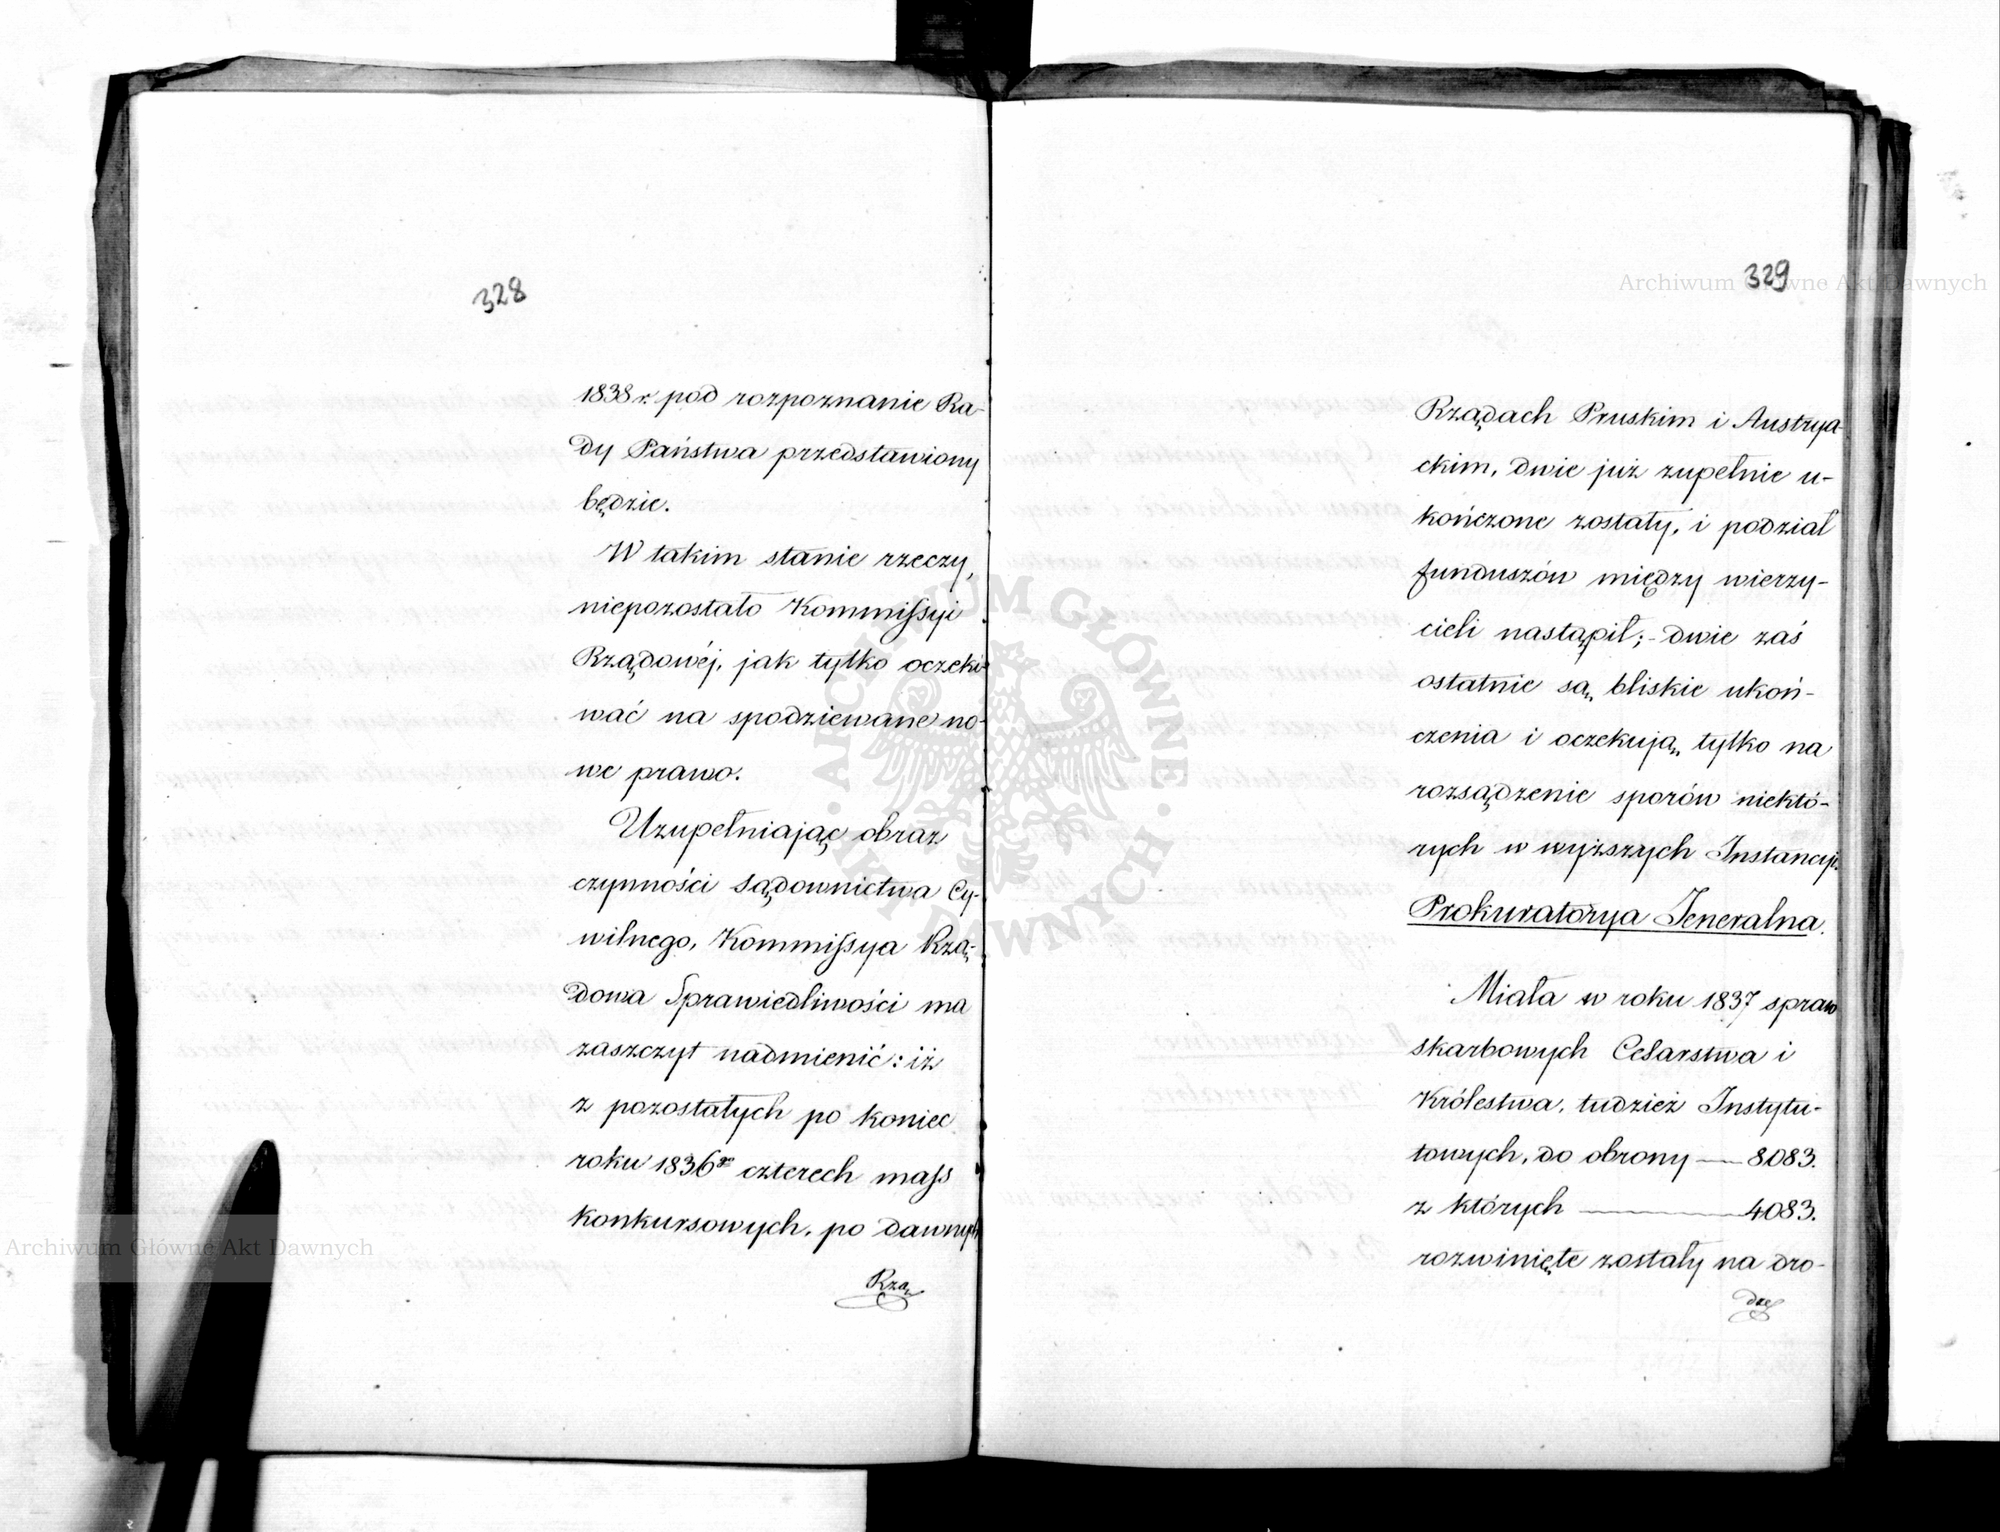 328
1838 r. pod rozpoznanie Ra-
dy Państwa przedstawiony
będzie.
W takim stanie rzeczy,
niepozostało Kommissyi
Rządowéj, jak tylko oczeki-
wać na spodziewane no-
we prawo.
Uzupełniając obraz
czynności Sądownictwa Cy-
wilnego, Kommissya Rzą-
dowa Sprawiedliwości ma
zaszczyt nadmienić: iż
z pozostałych po koniec
roku 1836go czterech mass
konkursowych, po dawnych
Rzą
329
Rządach Pruskim i Austrya-
ckim, dwie już zupełnie u-
kończone zostały, i podział
funduszów między wierzy-
cieli nastąpił; - dwie zaś
ostatnie są bliskie ukoń-
czenia i oczekują tylko na
rozsądzenie sporów niektó-
rych w wyższych Instancyi.
Prokuratorya Jeneralna.
Miała w roku 1837 spraw
skarbowych Cesarstwa i
Królestwa, tudzież Instytu-
towych, do obrony — 8083.
z których — 4083.
rozwinięte zostały na dro-
dze
Archiwum Główne Akt Dawnych
Archiwum Główne Akt Dawnych
ARCHIWUM GŁÓWNE · AKT DAWNYCH ·